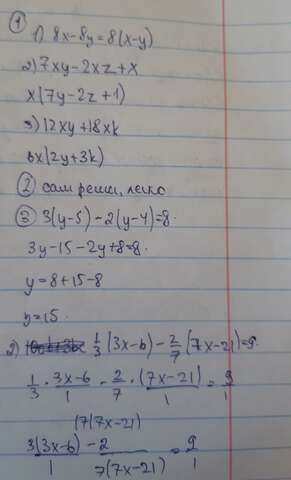 ① 1) 8x-8y=8(x-y)
2) 7xy-2xz+x
x(7y-2z+1)
3) 12xy+18xk
6x(2y+3k)
② сам реши, легко
③ 3(y-5)-2(y-4)=8.
3y-15-2y+8=8.
y=8+15-8
y=15.
2) 1/3 (3x-6) - 2/7 (7x-21)=9.
1/3 · 3x-6/1 - 2/7 · (7x-21)/1 = 9/1
(7(7x-21)
3(3x-6)/1 - 2/7(7x-21) = 9/1